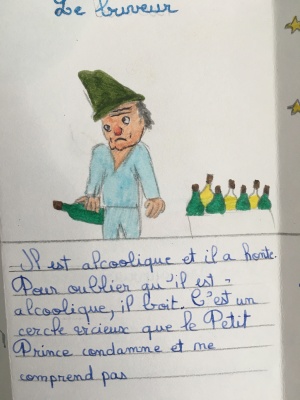 Le buveur
Il est alcoolique et il a honte.
Pour oublier qu'il est -
alcoolique, il boit. C'est un
cercle vicieux que le Petit
Prince condamne et ne
comprend pas